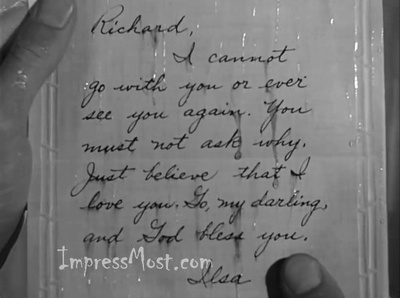 Richard,
I cannot
go with you or ever
see you again. You
must not ask why.
Just believe that I
love you. Go, my darling,
and God bless you.
ImpressMost.com
Ilsa